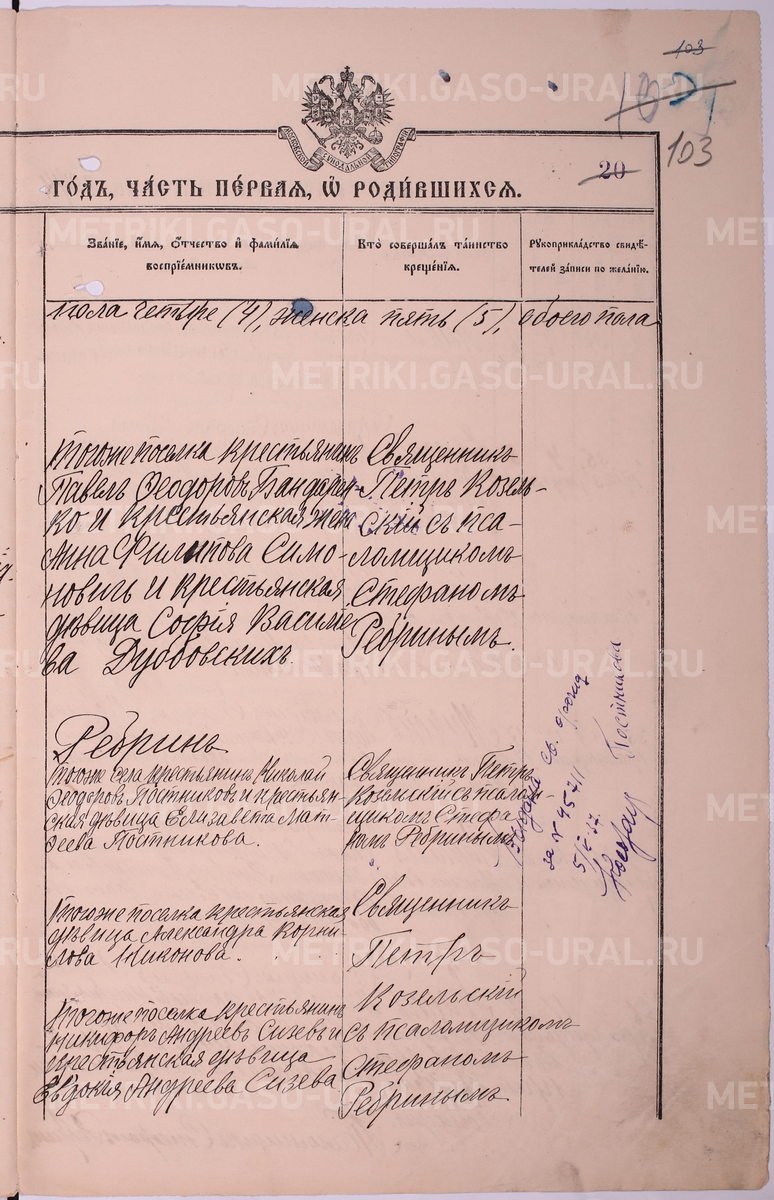 103
103
20
МОСКОВСКОЙ СѴНОДАЛЬНОЙ ТИПОГРАФІИ
ГО́ДЪ, ЧА́СТЬ ПЕ́РВАѦ, Ѽ РОДИ́ВШИХСѦ.
Зва́нїе, и҆́мѧ, ѻ҆́тчество и҆ фами́лїѧ
воспрїе́мниковъ.
Кто̀ соверша́лъ та́инство
креще́нїѧ.
Рꙋкоприкла́дство свидѣ́-
телей за́писи по жела́нїю.
пола четыре (4), женска пять (5), обоего пола
Тогоже поселка крестьянинъ
Павелъ Ѳеодоровъ Бандарен-
ко и крестьянская жена
Анна Филипова Симо-
новичъ и крестьянская
дѣвица Софія Василье
ва Дубовскихъ.
Священникъ
Петръ Козель-
скій съ пса-
ломщикомъ
Стефаномъ
Ребринымъ.
Ребринъ
Тогоже села крестьянинъ Николай
Ѳеодоровъ Постниковъ и крестьян-
ская дѣвица Елизавета Мат-
ѳеева Постникова.
Священникъ Петръ
Козельскій съ псалом-
щикомъ Стефа
номъ Ребринымъ
Выдана св. о рожд
за № 45711
5/V 67.
Постникова
Тогоже поселка крестьянская
дѣвица Александра Корни-
лова Никонова.
Священникъ
Петръ
Козельскій
съ псаломщикомъ
Стефаномъ
Ребринымъ
Тогоже поселка крестьянинъ
Никифоръ Андреевъ Сизевъ и
крестьянская дѣвица
Евдокія Андреева Сизева
METRIKI.GASO-URAL.RU